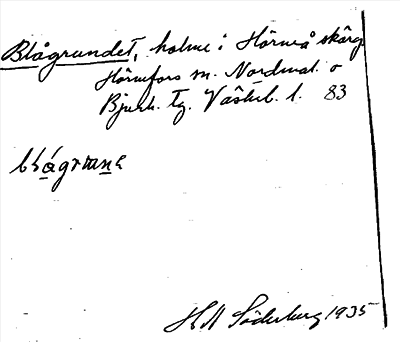 Blågrundet, holme i Hörneå skärg
Hörnefors sn. Nordmal. o
Bjurh. tg. Västerb. l. 83
blågrunɛ
H M Söderberg 1935